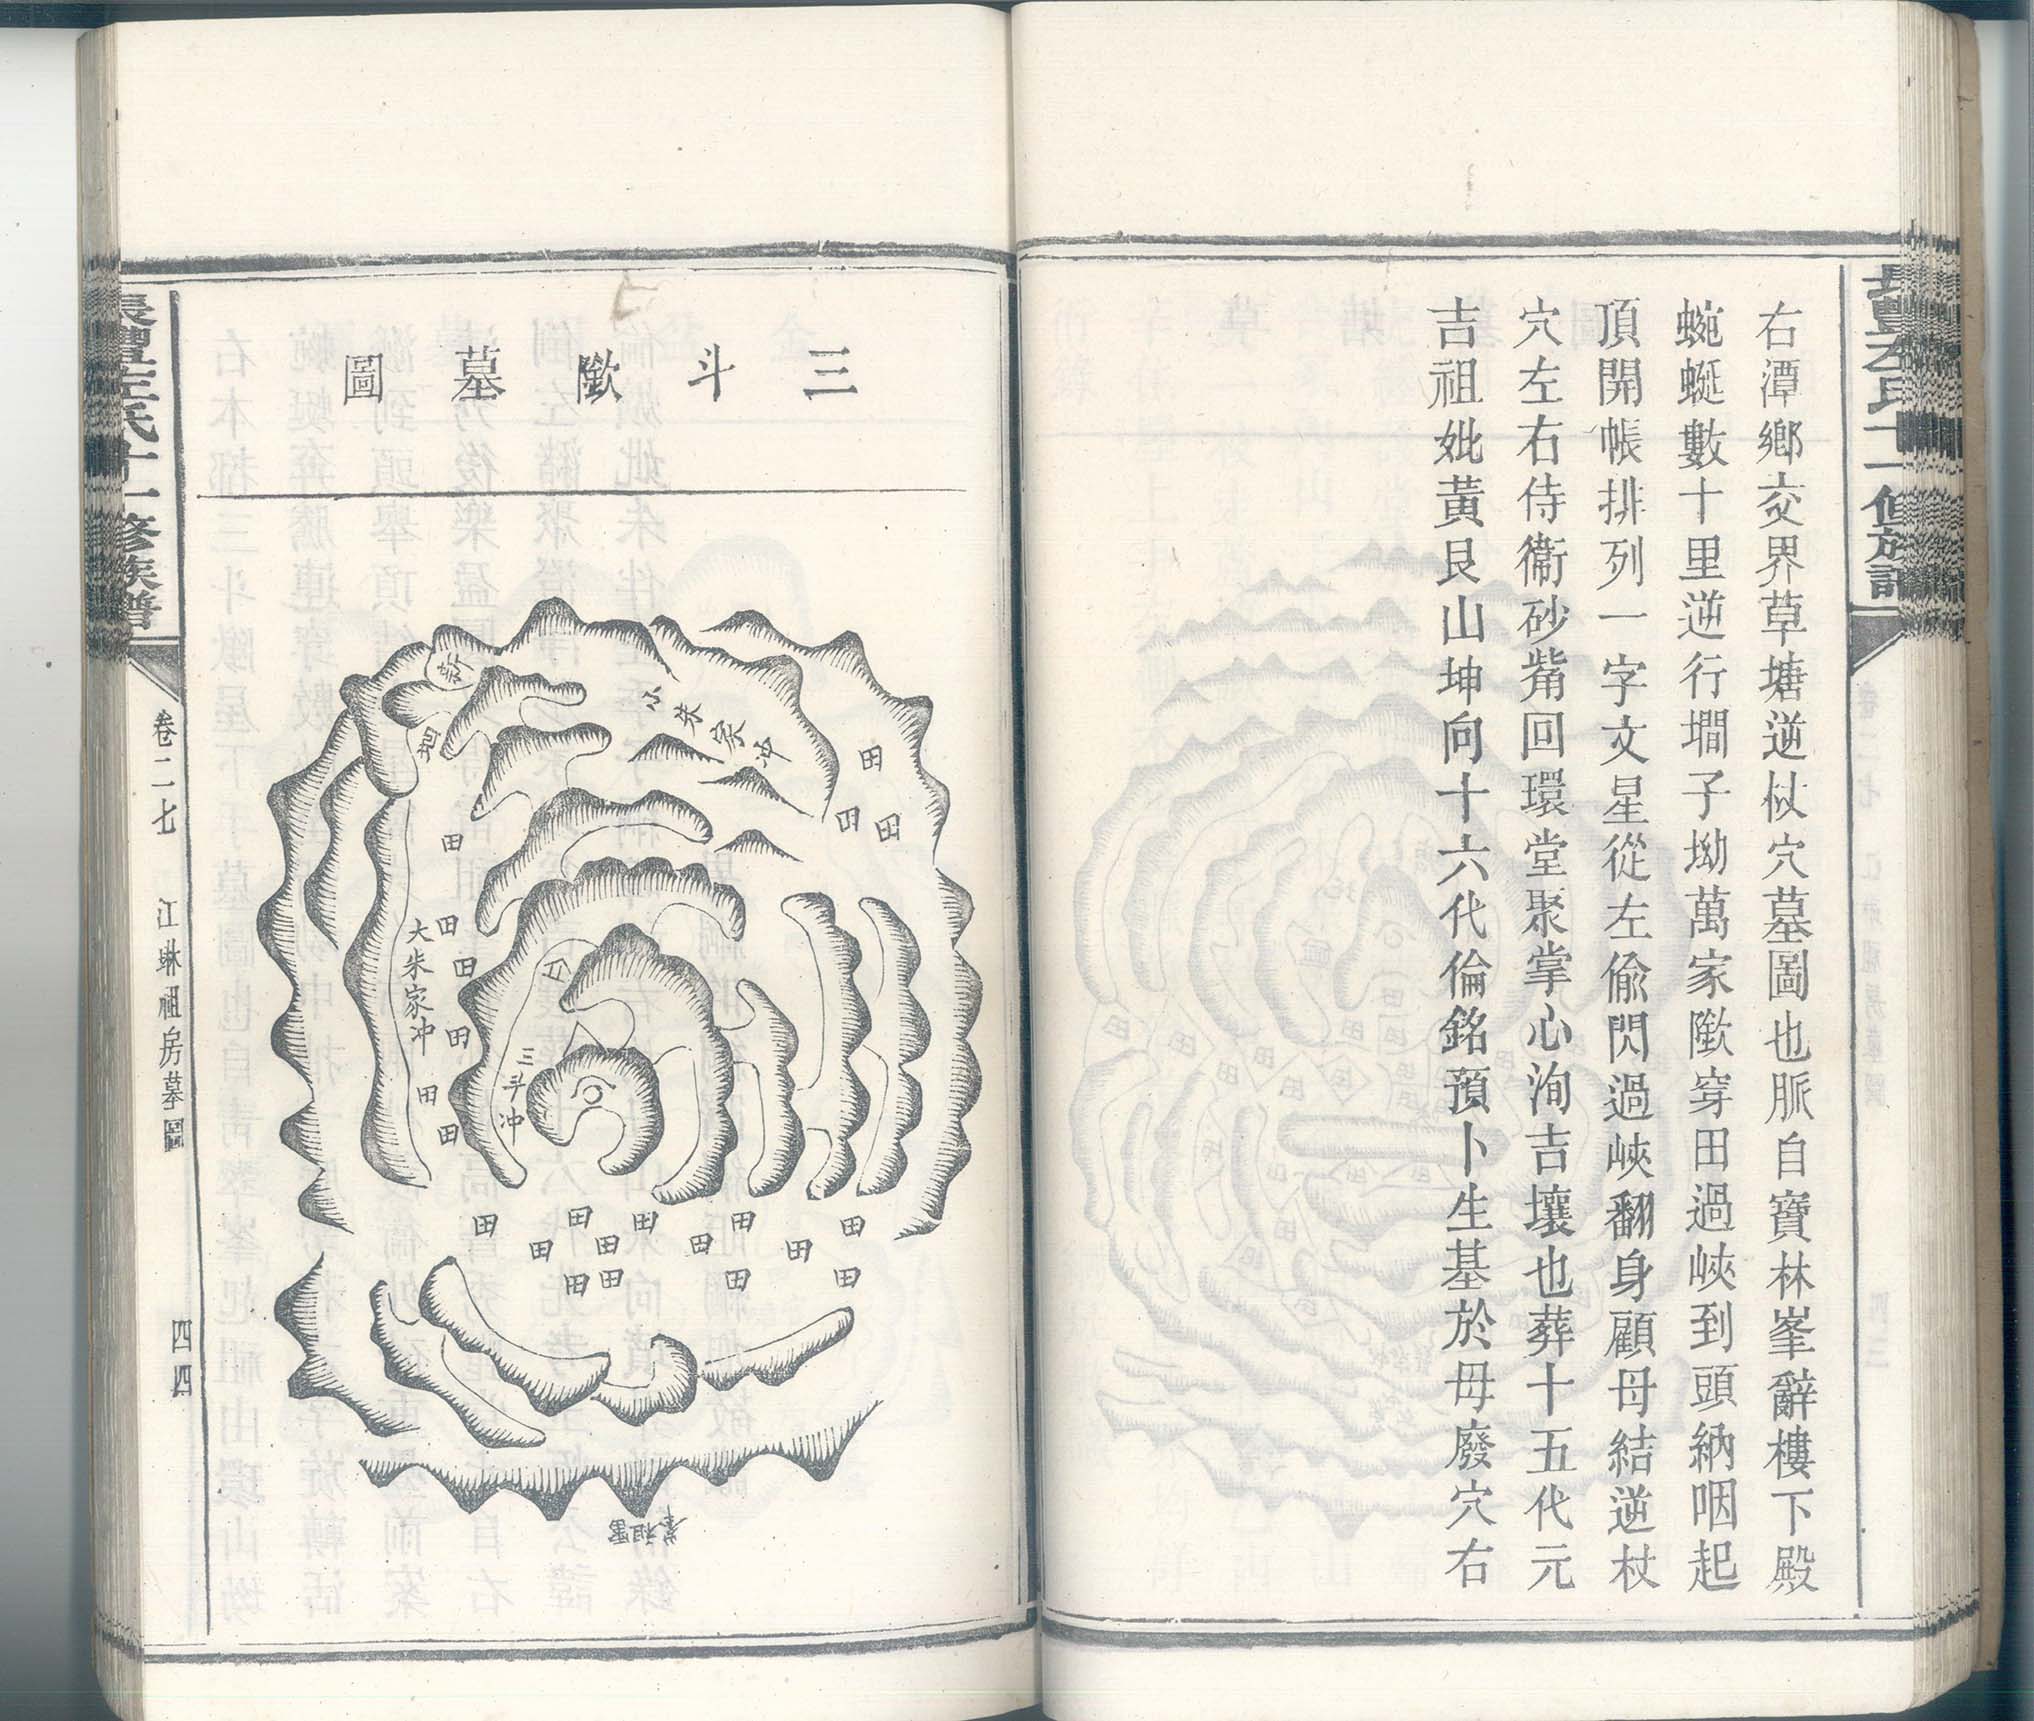 右潭鄉交界草塘逆杖穴墓圖也脈自寶林峯辭樓下殿
蜿蜒數十里逆行墹子坳萬家歞穿田過峽到頭納咽起
頂開帳排列一字文星從左偷閃過峽翻身顧母結逆杖
穴左右侍衞砂觜回環堂聚掌心洵吉壤也葬十五代元
吉祖妣黃艮山坤向十六代倫銘預卜生基於母廢穴右
三斗歞墓圖
小朱家冲
田
田
田
田
大朱家冲
田
田
田
田
田
三斗冲
田
田
田
田
田
田
田
田
田
田
田
田
田
十一修族譜
卷二七
江琳祖房墓圖
四四